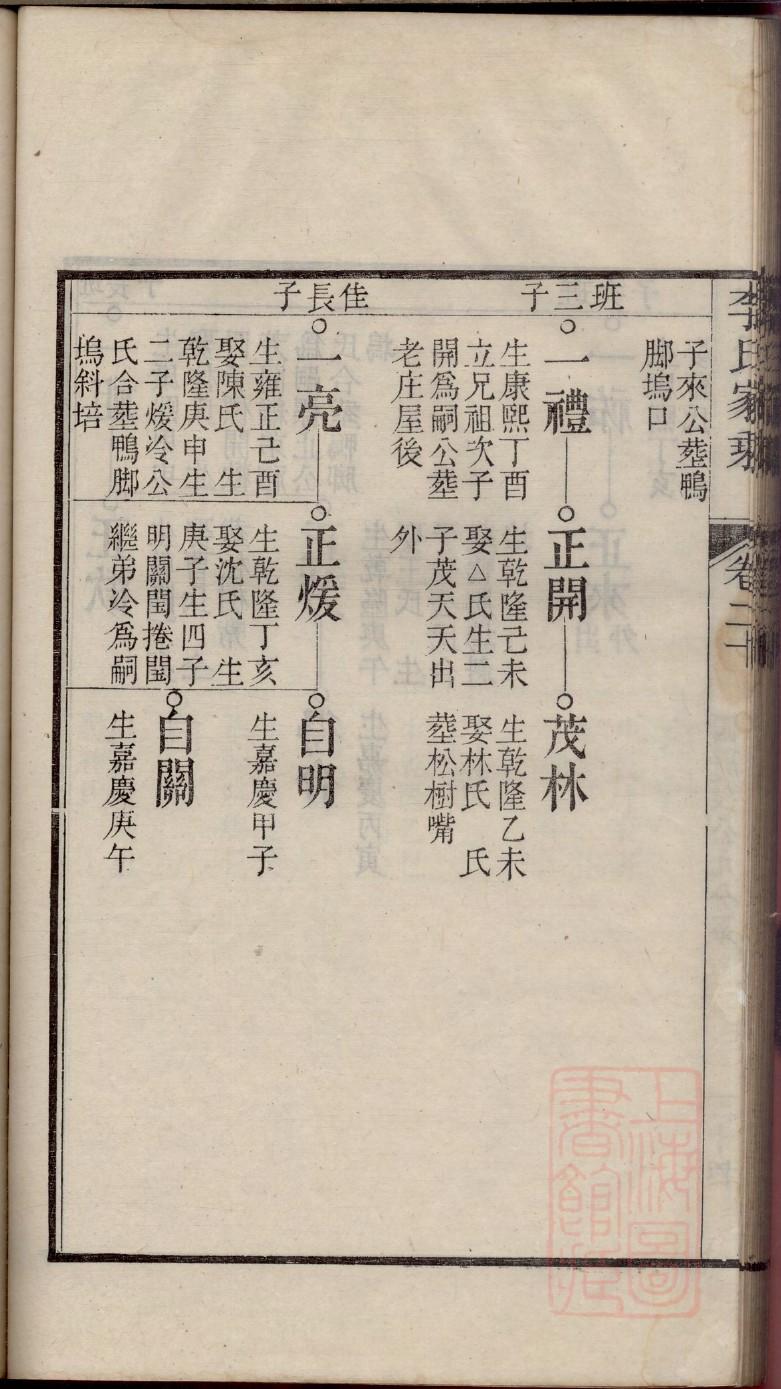 李氏家乘
卷二十
子來公塟鴨
脚塢口
班三子
一禮
生康熙丁酉
立兄祖次子
開爲嗣公塟
老庄屋後
正開
生乾隆己未
娶△氏生二
子茂天天出
外
茂林
生乾隆乙未
娶林氏 氏
塟松樹嘴
佳長子
一亮
生雍正己酉
娶陳氏 生
乾隆庚申生
二子煖冷公
氏合塟鴨脚
塢斜培
正煖
生乾隆丁亥
娶沈氏 生
庚子生四子
明關閏捲閏
繼弟冷爲嗣
自明
生嘉慶甲子
自關
生嘉慶庚午
上海圖
書館藏